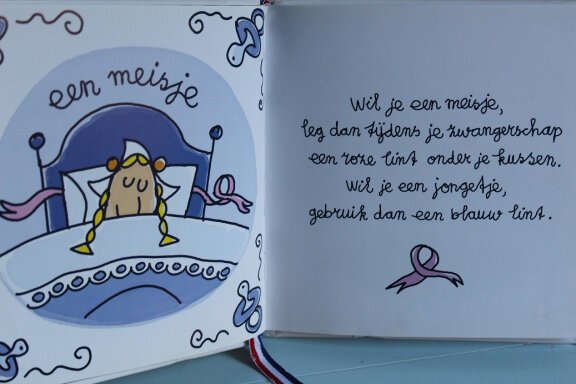 een meisje
Wil je een meisje,
leg dan tijdens je zwangerschap
een roze lint onder je kussen.
Wil je een jongetje,
gebruik dan een blauw lint.